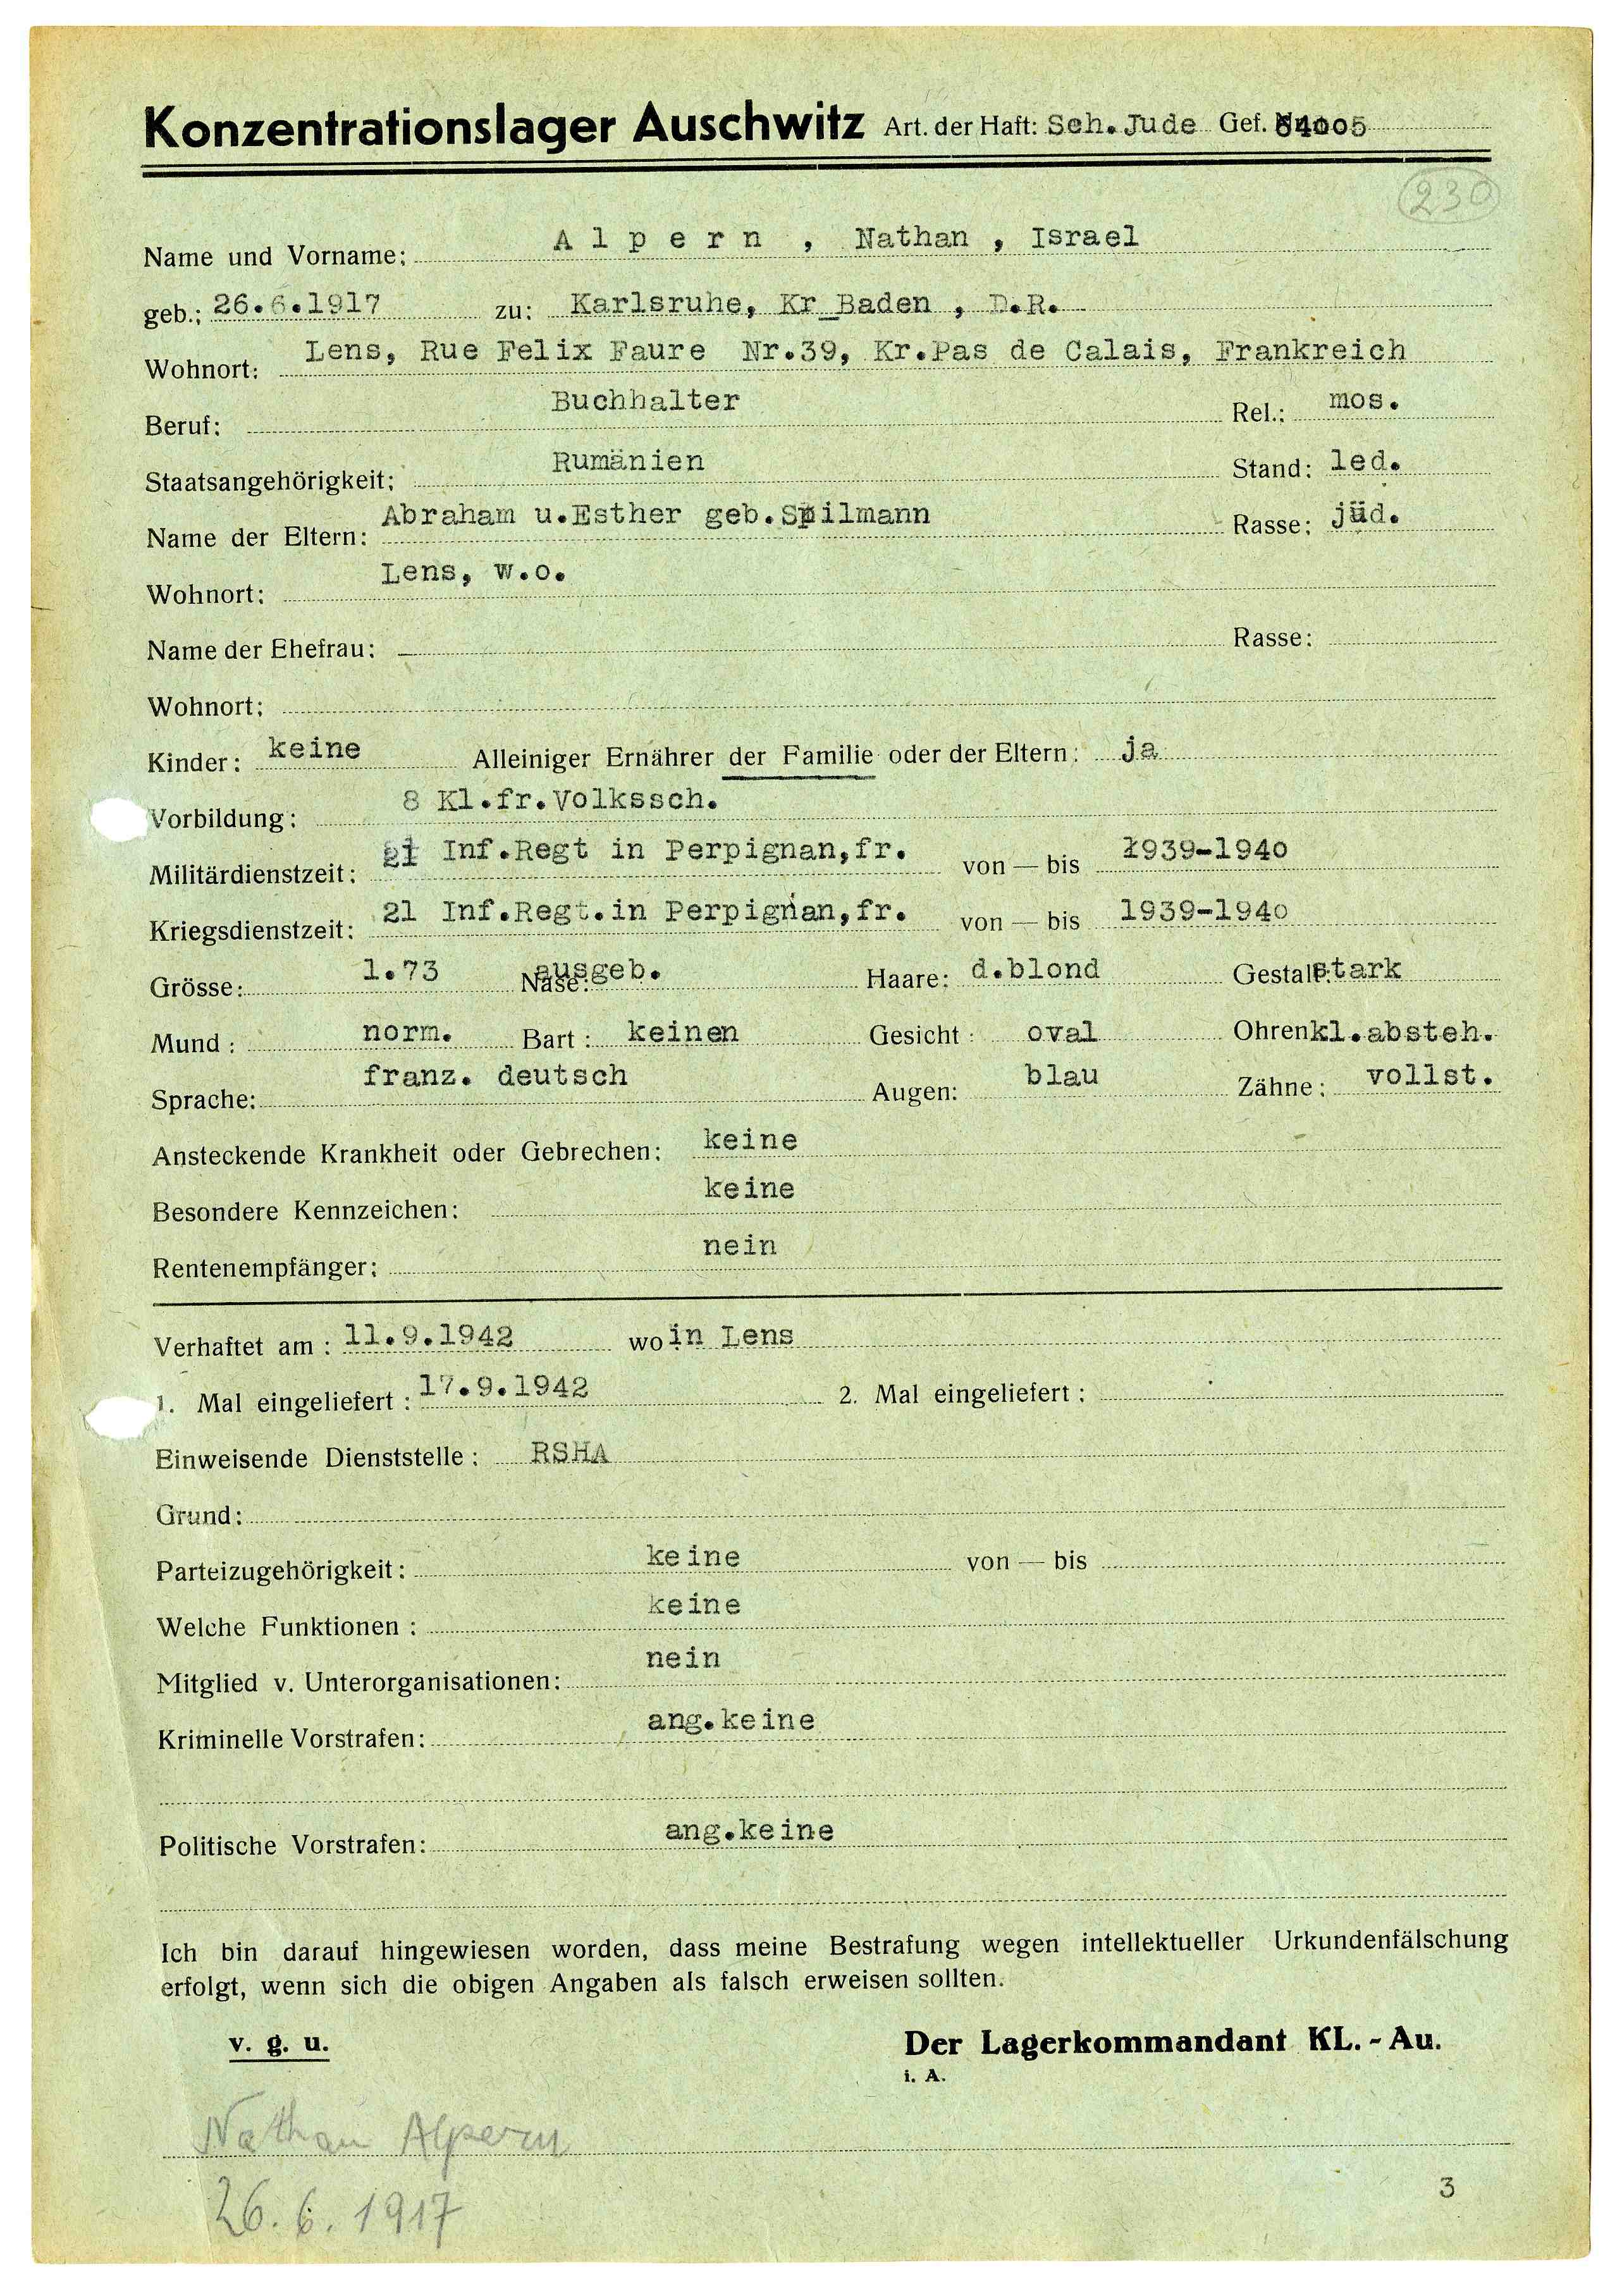 Konzentrationslager Auschwitz Art. der Haft: Sch. Jude Gef. 84005
230
Name und Vorname: Alpern, Nathan, Israel
geb.: 26.6.1917 zu: Karlsruhe, Kr_Baden, D.R.
Wohnort: Lens, Rue Felix Faure Nr.39, Kr.Pas de Calais, Frankreich
Beruf: Buchhalter Rel.: mos.
Staatsangehörigkeit: Rumänien Stand: led.
Name der Eltern: Abraham u.Esther geb.Spilmann Rasse: jüd.
Wohnort: Lens, w.o.
Name der Ehefrau: — Rasse:
Wohnort:
Kinder: keine Alleiniger Ernährer der Familie oder der Eltern: ja
Vorbildung: 8 Kl.fr.Volkssch.
Militärdienstzeit: 21 Inf.Regt in Perpignan,fr. von — bis 1939-1940
Kriegsdienstzeit: 21 Inf.Regt.in Perpignan,fr. von — bis 1939-1940
Grösse: 1.73 Nase: ausgeb. Haare: d.blond Gestalt: stark
Mund: norm. Bart: keinen Gesicht: oval Ohren kl.absteh.
Sprache: franz. deutsch Augen: blau Zähne: vollst.
Ansteckende Krankheit oder Gebrechen: keine
Besondere Kennzeichen: keine
Rentenempfänger: nein
Verhaftet am: 11.9.1942 wo: in Lens
1. Mal eingeliefert: 17.9.1942 2. Mal eingeliefert:
Einweisende Dienststelle: RSHA
Grund:
Parteizugehörigkeit: keine von — bis
Welche Funktionen: keine
Mitglied v. Unterorganisationen: nein
Kriminelle Vorstrafen: ang.keine
Politische Vorstrafen: ang.keine
Ich bin darauf hingewiesen worden, dass meine Bestrafung wegen intellektueller Urkundenfälschung
erfolgt, wenn sich die obigen Angaben als falsch erweisen sollten.
v. g. u. Der Lagerkommandant KL.-Au.
i. A.
Nathan Alpern
26.6.1917
3